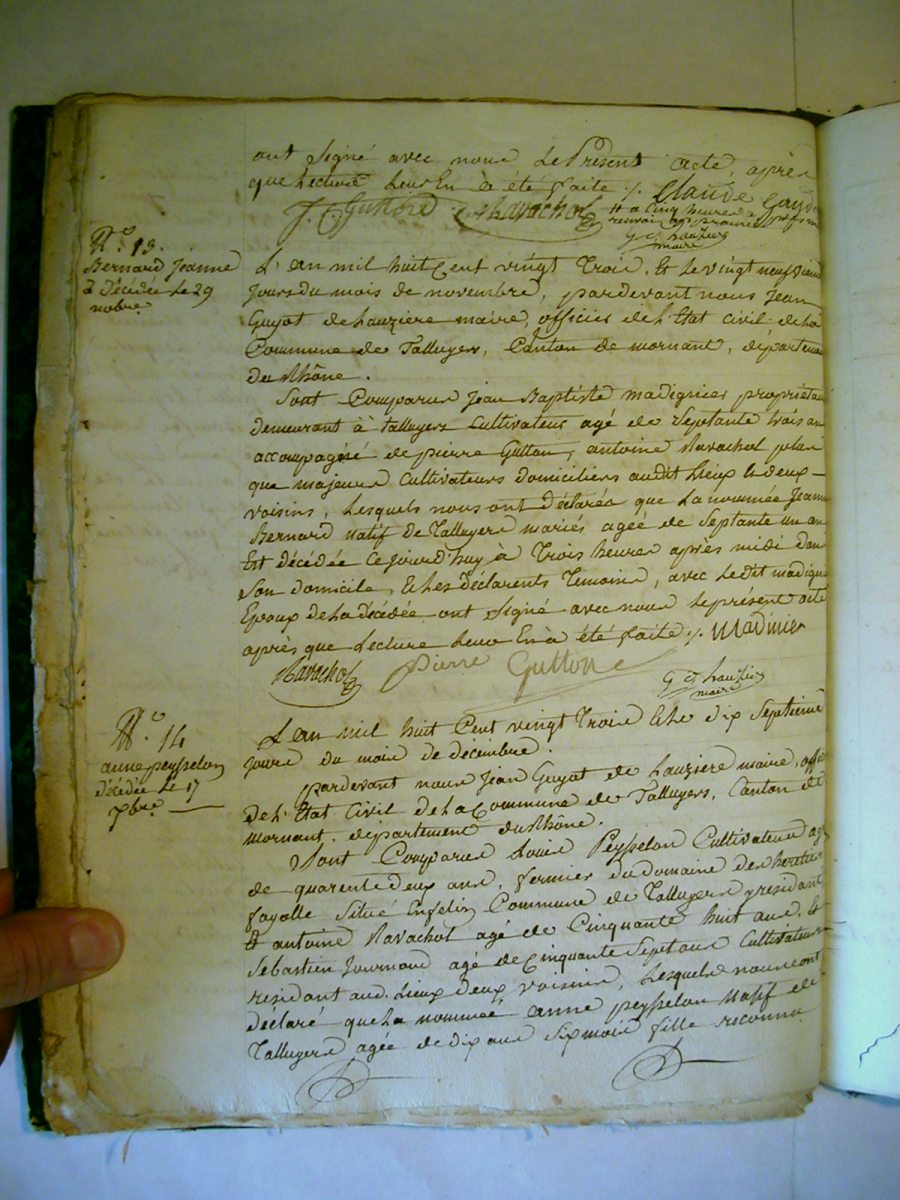 ont Signé avec nous Le Présent acte, après
que Lecture Leur En a été faite ./. Claude Gayo
J. C. Guttone Ravachol # a Cinq heures
renvoi approuvé
G d. Lauzier
maire
N.º 13.
Bernard Jeanne
Décédée Le 29
nobre.
L'an mil huit Cent vingt Trois, Et Le vingt neufviem
Jours du mois de novembre, pardevant nous Jean
Guyot de Lauziere maire, officier de L'Etat Civil de La
Commune de Talluyers, Canton de mornant, departem
du Rhône.
Sont Comparus Jean Baptiste madignier propriétai
demeurant à talluyers Cultivateur agé de Septante trois an
accompagné de pierre Gutton, antoine Ravachol plus
que majeurs Cultivateurs domiciliers audit Lieux Et deux
voisins, Lesquels nous ont déclarés que La nommée Jeann
Bernard Natif de Talluyers mariés, agée de Septante un an
Est décédée Cejourd'huy a Trois heures après midi dans
Son domicile, Et Les Déclarents Temoins, avec Ledit madign
Epoux de La décédée ont Signé avec nous Le présent acte
après que Lecture Leur En a été faite ./. Madinier
Ravachol Pierre Guttone G d. Lauzier
maire
N.º 14
anne peysselon
décédée Le 17
xbre.
L'an mil huit Cent vingt Trois Et Le dix Septieme
Jours du mois de decembre.
pardevant nous Jean Guyot de Lauziere maire, offici
de L'Etat Civil de La Commune de Talluyers, Canton de
mornant, departement du Rhône.
Sont Comparus Louis Peysselon Cultivateur ag
de quarente deux ans, fermier du domaine des
fayolle Situé Enfelin Commune de Talluyers y residant
Et antoine Ravachol agé de Cinquante huit ans, Et
Sebastien Journoud agé de Cinquante Sept ans Cultivateurs
residant aud. Lieux Deux voisins, Lesquels nous ont
déclaré que La nommée anne peysselon Natif de
Talluyers agée de dix ans Six mois fille reconnu